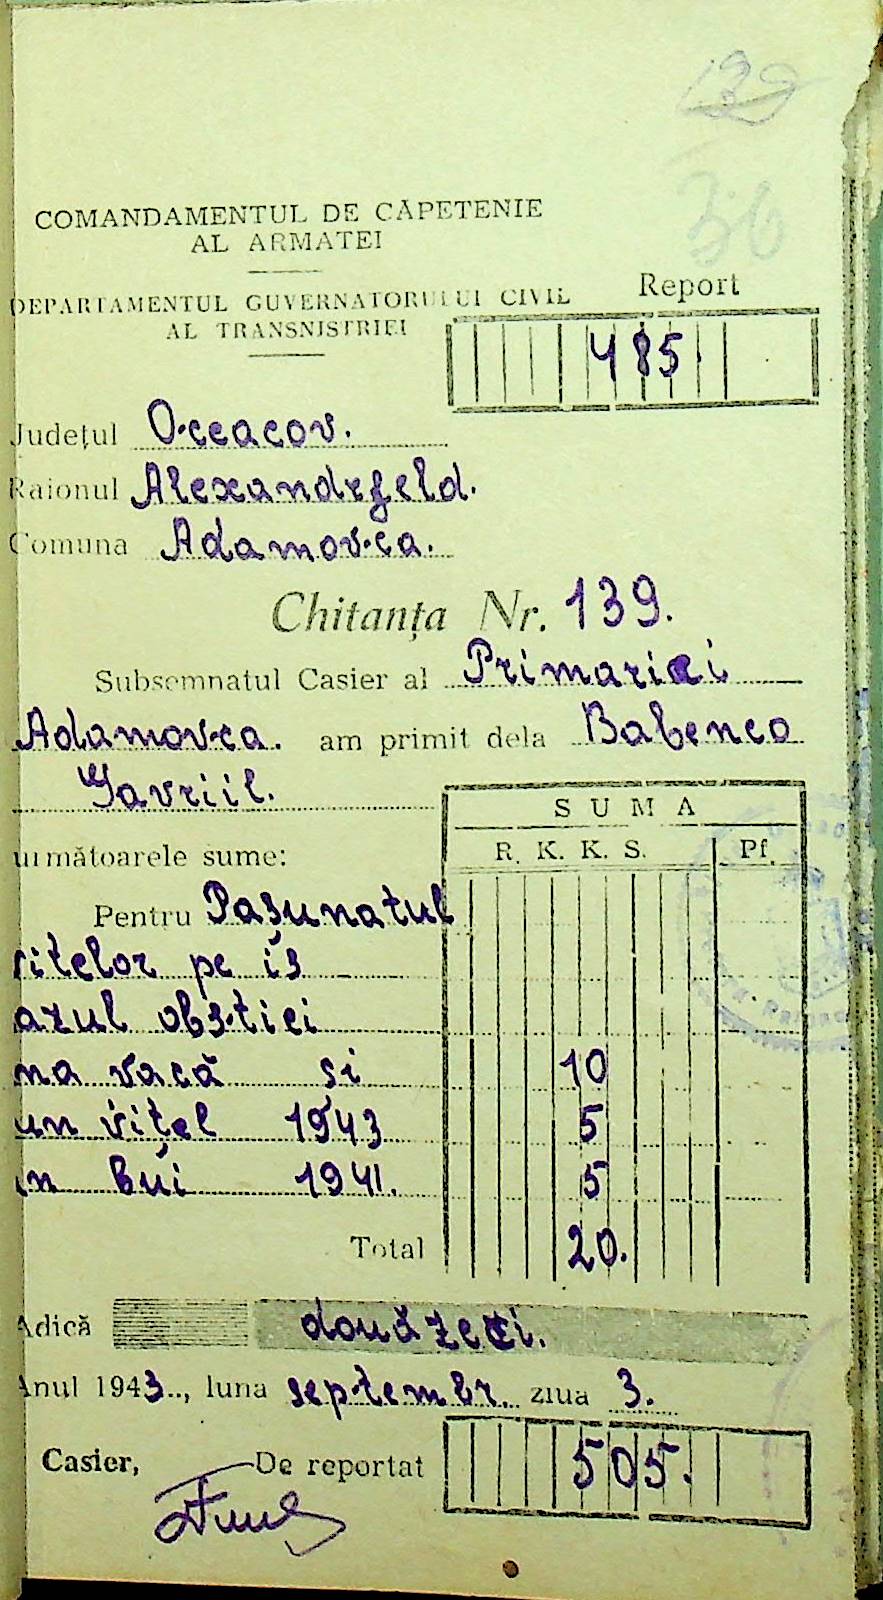 139
36
COMANDAMENTUL DE CĂPETENIE
AL ARMATEI
DEPARTAMENTUL GUVERNATORULUI CIVIL
AL TRANSNISTRIEI
Report
485.
Județul Oceacov.
Raionul Alexandrfeld.
Comuna Adamovca.
Chitanța Nr. 139.
Subsemnatul Casier al Primariei
Adamovca. am primit dela Babenco
Gavriil.
SUMA
următoarele sume:
R. K. K. S. Pf.
Pentru Pașunatul
vitelor pe is
azul obștiei
na vacă și 10
un vițel 1943 5
un bui 1941. 5
Total 20.
Adică două zeci.
Anul 1943., luna septembr. ziua 3.
Casier, De reportat 505.